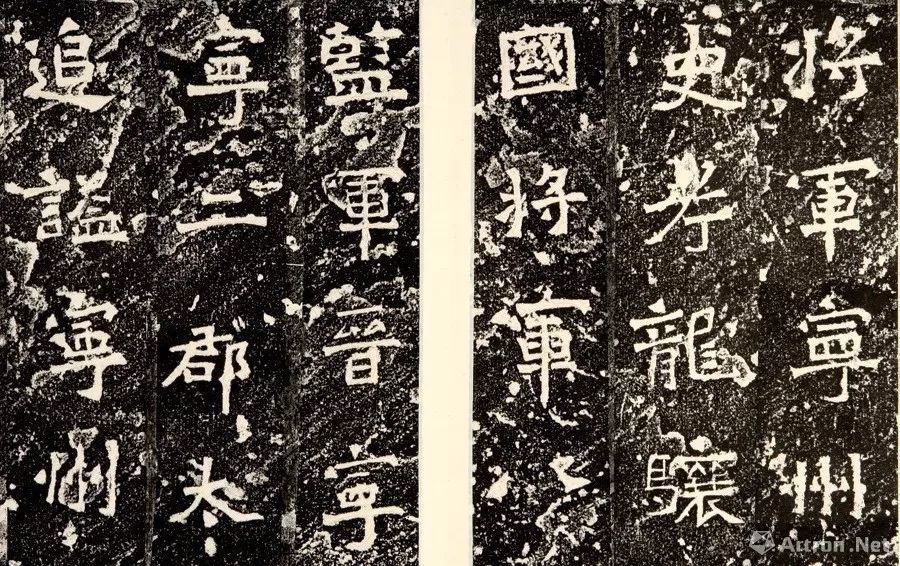 將軍寧州
史考龍驤
國將軍
監軍晉寧
寧二郡太
追謚寧州
Artron.Net